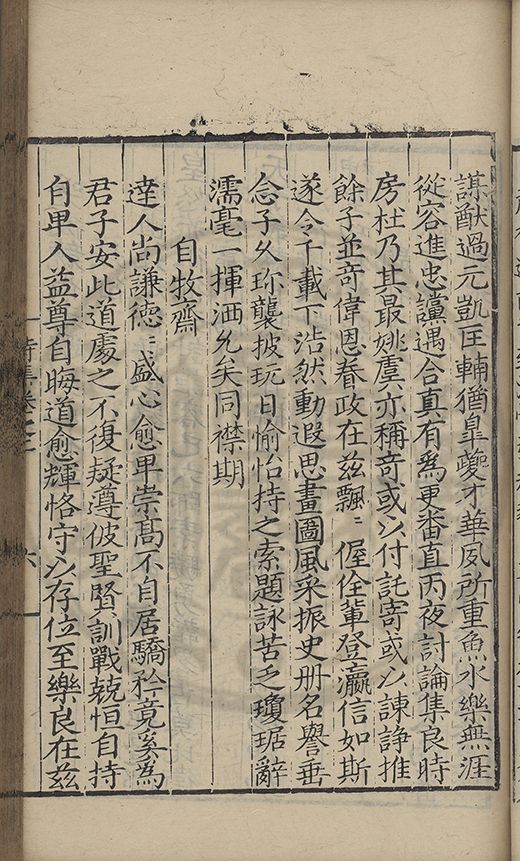 謀猷過元凱匡輔猶皐夔才華夙所重魚水樂無涯
從容進忠讜遇合真有為更番直丙夜討論集良時
房杜乃其最姚虞亦稱奇或以付託寄或以諫諍推
餘子並奇偉恩眷政在茲飄〻偓佺輩登瀛信如斯
遂令千載下浩然動遐思畫圖風采振史册名譽垂
念子久珎襲披玩日愉怡持之索題詠苦乏瓊琚辭
濡毫一揮洒允矣同襟期
自牧齋
達人尚謙德〻盛心愈卑崇髙不自居驕矜竟奚為
君子安此道處之不復疑遵彼聖賢訓戰兢恒自持
自卑人益尊自晦道愈輝恪守以存位至樂良在茲
詩集卷之二
六